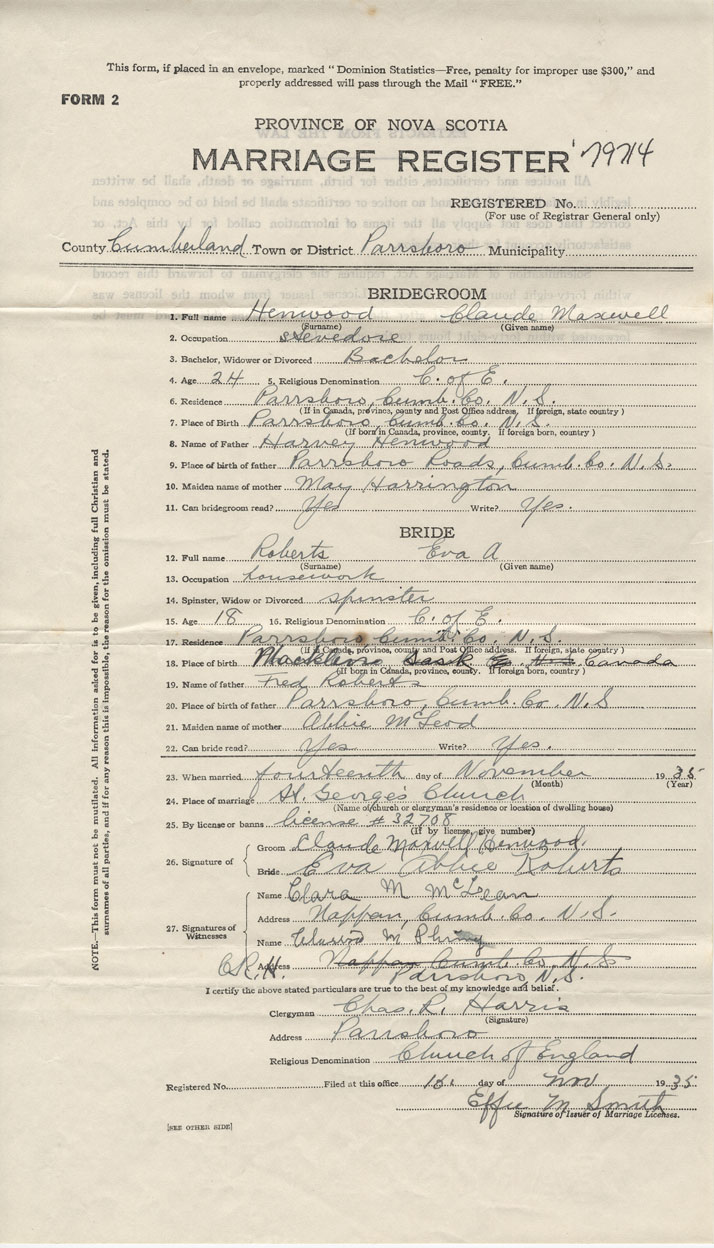 This form, if placed in an envelope, marked "Dominion Statistics—Free, penalty for improper use $300," and
properly addressed will pass through the Mail "FREE."
FORM 2
PROVINCE OF NOVA SCOTIA
MARRIAGE REGISTER
REGISTERED No.
(For use of Registrar General only)
County Cumberland Town or District Parrsboro Municipality
BRIDEGROOM
1. Full name Henwood Claude Maxwell
(Surname) (Given name)
2. Occupation stevedore
3. Bachelor, Widower or Divorced Bachelor
4. Age 24 5. Religious Denomination C. of E.
6. Residence Parrsboro, Cumb. Co. N.S.
(If in Canada, province, county and Post Office address. If foreign, state country)
7. Place of Birth Parrsboro, Cumb. Co. N.S.
(If born in Canada, province, county. If foreign born, country)
8. Name of Father Harvey Henwood
9. Place of birth of father Parrsboro Roads, Cumb. Co. N.S.
10. Maiden name of mother May Harrington
11. Can bridegroom read? Yes Write? Yes.
BRIDE
12. Full name Roberts Eva A
(Surname) (Given name)
13. Occupation housework
14. Spinster, Widow or Divorced spinster
15. Age 18 16. Religious Denomination C. of E.
17. Residence Parrsboro, Cumb. Co. N.S.
(If in Canada, province, county and Post Office address. If foreign, state country)
18. Place of birth Sask Canada
(If born in Canada, province, county. If foreign born, country)
19. Name of father Fred Roberts
20. Place of birth of father Parrsboro, Cumb. Co. N.S
21. Maiden name of mother Abbie McLeod
22. Can bride read? Yes Write? Yes.
23. When married fourteenth day of November 1935
(Month) (Year)
24. Place of marriage St. George's Church
(Name of church or clergyman's residence or location of dwelling house)
25. By license or banns license # 32708
(if by license, give number)
26. Signature of
Groom Claude Maxwell Henwood.
Bride Eva Abbie Roberts
27. Signatures of Witnesses
Name Clara M McLean
Address Nappan, Cumb. Co. N.S.
Name M
C.R.H. Address Nappan Cumb. Co. N.S
Parrsboro, N.S.
I certify the above stated particulars are true to the best of my knowledge and belief.
Clergyman Chas. R. Harris
(Signature)
Address Parrsboro
Religious Denomination Church of England
Registered No. Filed at this office day of Nov 1935
Effie M Smith
Signature of Issuer of Marriage Licenses.
[SEE OTHER SIDE]
NOTE.—This form must not be mutilated. All information asked for is to be given, including full Christian and
surnames of all parties, and if for any reason this is impossible, the reason for the omission must be stated.